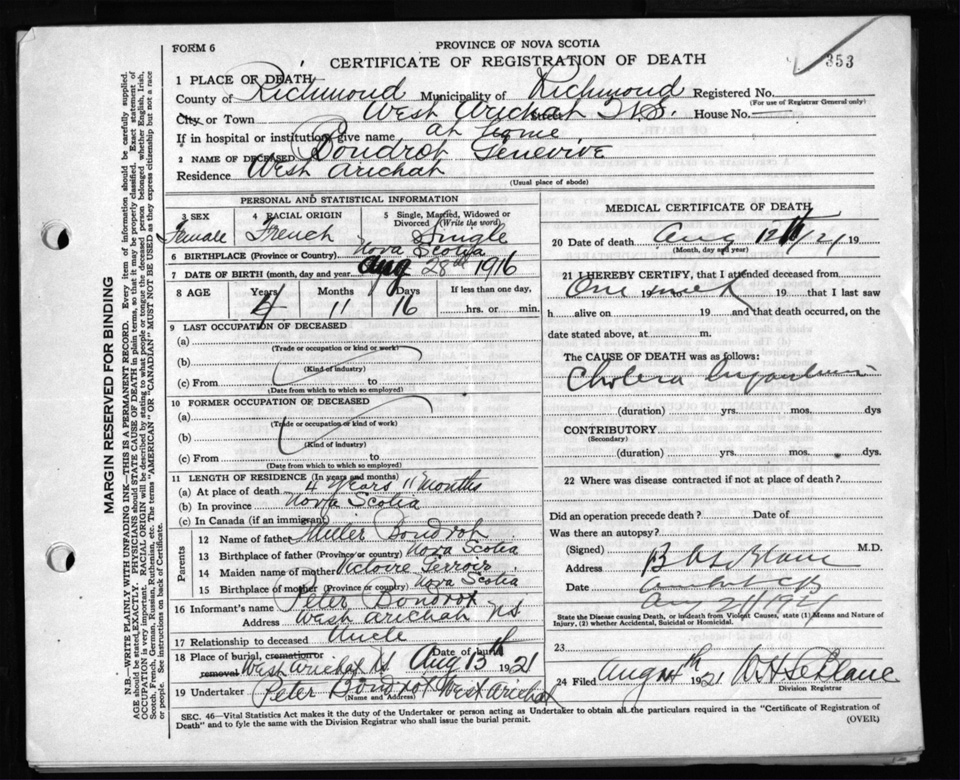 FORM 6
PROVINCE OF NOVA SCOTIA
CERTIFICATE OF REGISTRATION OF DEATH
353
1 PLACE OF DEATH
County of Richmond Municipality of Richmond Registered No.
(For use of Registrar General only)
City or Town West Arichat N.S. House No.
If in hospital or institution, give name at Home
2 NAME OF DECEASED Boudrot Genevive
Residence West Arichat
(Usual place of abode)
PERSONAL AND STATISTICAL INFORMATION
3 SEX 4 RACIAL ORIGIN 5 Single, Married, Widowed or Divorced (Write the word)
Female French Single
6 BIRTHPLACE (Province or Country) Nova Scotia
7 DATE OF BIRTH (month, day and year) Aug 28th 1916
8 AGE Years Months Days If less than one day,
4 11 16 hrs. or min.
9 LAST OCCUPATION OF DECEASED
(a)
(Trade or occupation or kind of work)
(b)
(Kind of industry)
(c) From to
(Date from which to which so employed)
10 FORMER OCCUPATION OF DECEASED
(a)
(Trade or occupation or kind of work)
(b)
(Kind of industry)
(c) From to
(Date from which to which so employed)
11 LENGTH OF RESIDENCE (In years and months)
(a) At place of death 4 years 11 months
(b) In province Nova Scotia
(c) In Canada (if an immigrant)
Parents
12 Name of father Miller Boudrot
13 Birthplace of father (Province or country) Nova Scotia
14 Maiden name of mother Victoire
15 Birthplace of mother (Province or country) Nova Scotia
16 Informant's name Peter Boudrot
Address West Arichat N.S.
17 Relationship to deceased Uncle
18 Place of burial, cremation or removal Date of burial
West Arichat N.S. Aug 13th 1921
19 Undertaker Peter Boudrot West Arichat
(Name and Address)
MEDICAL CERTIFICATE OF DEATH
20 Date of death Aug 12th/21 19
(Month, day and year)
21 I HEREBY CERTIFY, that I attended deceased from
One week 19 that I last saw
h alive on 19 and that death occurred, on the
date stated above, at m.
The CAUSE OF DEATH was as follows:
Cholera
(duration) yrs. mos. dys
CONTRIBUTORY
(Secondary)
(duration) yrs. mos. dys.
22 Where was disease contracted if not at place of death?
Did an operation precede death? Date of
Was there an autopsy?
(Signed) B LeBlanc M.D.
Address
Date Aug 1921
State the Disease causing Death, or in death from Violent Causes, state (1) Means and Nature of Injury, (2) whether Accidental, Suicidal or Homicidal.
23
24 Filed Aug 14th 1921 W H LeBlanc
Division Registrar
SEC. 46—Vital Statistics Act makes it the duty of the Undertaker or person acting as Undertaker to obtain all the particulars required in the "Certificate of Registration of
Death" and to fyle the same with the Division Registrar who shall issue the burial permit.
(OVER)
MARGIN RESERVED FOR BINDING
N.B.—WRITE PLAINLY WITH UNFADING INK—THIS IS A PERMANENT RECORD. Every item of information should be carefully supplied.
AGE should be stated EXACTLY. PHYSICIANS should STATE CAUSE OF DEATH in plain terms, so that it may be properly classified. Exact statement of
OCCUPATION is very important. RACIAL ORIGIN will be described by stating to what people or tongue the deceased person belonged whether English, Irish,
Scotch, French, German, Russian, Ruthenian, etc. The terms "AMERICAN" or "CANADIAN" MUST NOT BE USED as they express citizenship but not a race
or people. See instructions on back of Certificate.